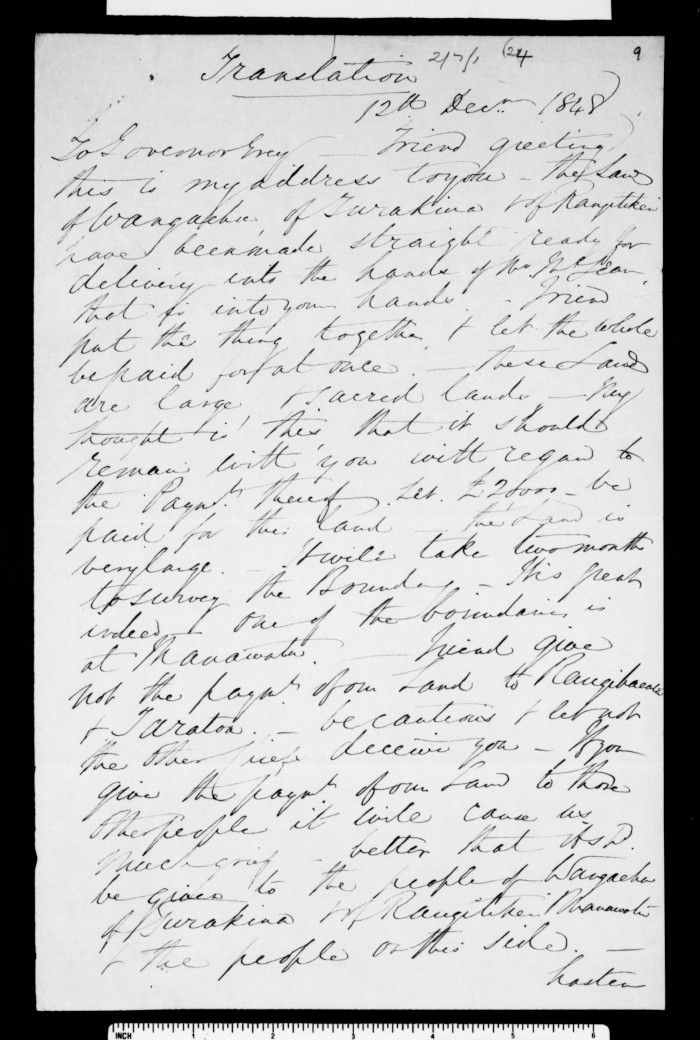 217/1 (24 9
Translation
12th Decr. 1848
To Governor Grey — Friend greeting
this is my address to you — the Land
of Wangaehu of Turakina & of Rangitikei
have been made straight ready for
delivery into the hands of Mr. McLean,
that is into your hands. — Friend
put the thing together & let the whole
be paid for at once. — these Land
are large & sacred lands — My
thought is this, that it should
remain with you with regard to
the Paymt. thereof. Let £20000 — be
paid for this land — the Land is
very large. — It will take two months
to survey the Boundary — It is great
indeed — one of the boundaries is
at Manawatu. — Friend give
not the paymt. of our Land to Rangihaeata
& Taratoa. — be cautious & let not
the other deceive you — If you
give the paymt. of our Land to those
other people it will cause us
much grief — better that it shd.
be given to the people of Wangaehu
of Turakina & of Rangitikei Manawatu
& the people on this side. —
hasten
INCH 1 2 3 4 5 6